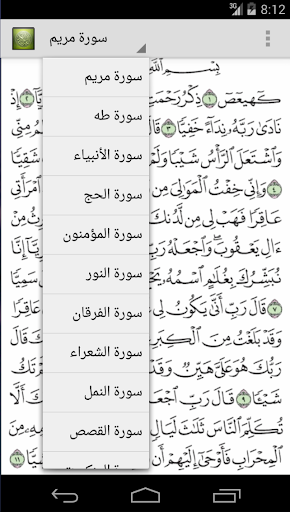 3G 8:12
سورة مريم
سورة مريم
سورة طه
سورة الأنبياء
سورة الحج
سورة المؤمنون
سورة النور
سورة الفرقان
سورة الشعراء
سورة النمل
سورة القصص
بِسْمِ ٱللَّهِ
كٓهيعٓصٓ ١ ذِكْرُ رَحْمَتِ ٢ إِذْ
نَادَىٰ رَبَّهُۥ نِدَآءً خَفِيًّا ٣ قَالَ مِنِّي
وَٱشْتَعَلَ ٱلرَّأْسُ شَيْبًا وَلَمْ شَقِيًّا
٤ وَإِنِّي خِفْتُ ٱلْمَوَٰلِيَ مِن ٱمْرَأَتِي
عَاقِرًا فَهَبْ لِي مِن لَّدُنكَ مِنْ
ءَالِ يَعْقُوبَ وَٱجْعَلْهُ إِنَّا
نُبَشِّرُكَ بِغُلَٰمٍ ٱسْمُهُۥ سَمِيًّا
٧ قَالَ رَبِّ أَنَّىٰ يَكُونُ لِي عَاقِرًا
وَقَدْ بَلَغْتُ مِنَ ٱلْكِبَرِ قَالَ
رَبُّكَ هُوَ عَلَيَّ هَيِّنٌ وَقَدْ تَكُ
شَيْـًٔا ٩ قَالَ رَبِّ ٱجْعَل أَلَّا
تُكَلِّمَ ٱلنَّاسَ ثَلَٰثَ لَيَالٍ مِنَ
ٱلْمِحْرَابِ فَأَوْحَىٰٓ إِلَيْهِمْ أَن ١١